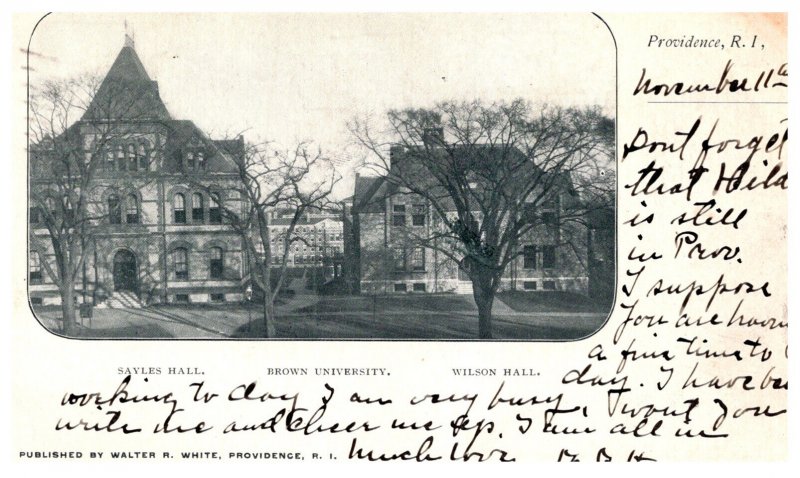 Providence, R. I,
November 11th
Dont forget
that Hilda
is still
in Prov.
I suppose
You are having
a fine time to
day. I have been
SAYLES HALL. BROWN UNIVERSITY. WILSON HALL.
working to day I am very busy, wont You
write me and cheer me up. I am all in
PUBLISHED BY WALTER R. WHITE, PROVIDENCE, R. I. Much love